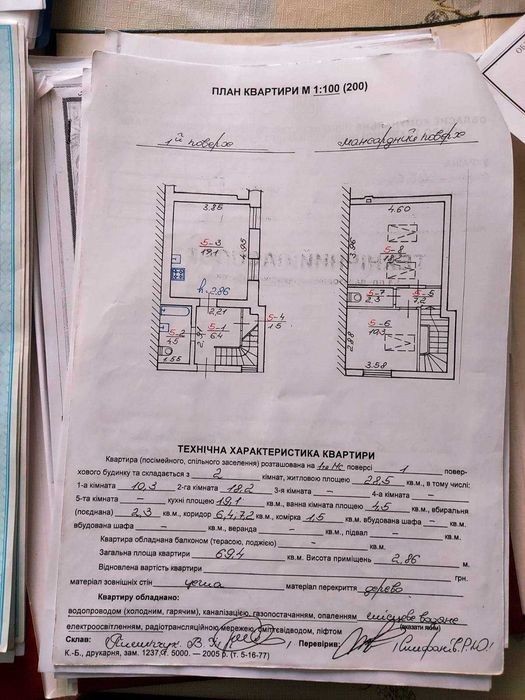 ПЛАН КВАРТИРИ М 1:100 (200)
1й поверх
мансардний поверх
3.85
4.60
5-3
19.1
4.95
5-8
18.2
3.96
h-2.86
5-7
2.3
5-5
7.2
2,21
5-4
1.5
5-2
4.5
5-1
6.4
5-6
10.3
2.88
1.55
3.58
ТЕХНІЧНА ХАРАКТЕРИСТИКА КВАРТИРИ
Квартира (посімейного, спільного заселення) розташована на 1 та Мс поверсі 1 повер-
хового будинку та складається з 2 кімнат, житловою площею 28.5 кв.м., в тому числі:
1-а кімната 10,3 2-га кімната 18.2 3-я кімната – 4-а кімната –
5-та кімната – кухні площею 19,1 кв.м., ванна кімната площею 4.5 кв.м., вбиральня
(поєднана) 2,3 кв.м., коридор 6,4, 7,2 кв.м., комірка 1.5 кв.м., вбудована шафа – кв.м.,
вбудована шафа – кв.м., веранда – кв.м., підвал – кв.м.
Квартира обладнана балконом (терасою, лоджією) – кв.м.
Загальна площа квартири 69,4 кв.м. Висота приміщень 2,86 м.
Відновлена вартість квартири грн.
матеріал зовнішніх стін цегла матеріал перекриття дерево
Квартиру обладнано:
водопроводом (холодним, гарячим), каналізацією, газопостачанням, опаленням місцеве водяне
(вказати яким)
електроосвітленням, радіотрансляційною мережею, сміттєвідводом, ліфтом
Склав: Перевірив:
К.-Б., друкарня, зам. 1237, т. 5000. – 2005 р. (т. 5-16-77)